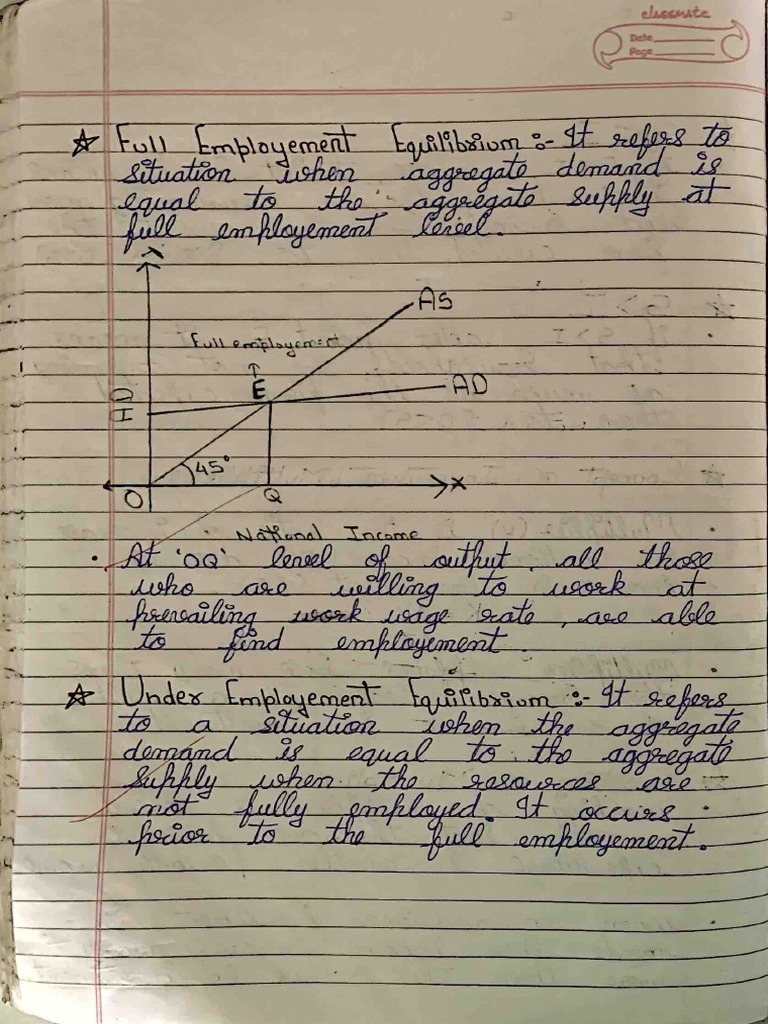 classmate
Date
Page
☆ Full Employement Equilibrium :- It refers to
situation when aggregate demand is
equal to the aggregate supply at
full employement level.
Y
AS
Full employement
↑
E
AD
AD
45°
O
Q
X
National Income
• At 'OQ' level of output, all those
who are willing to work at
prevailing work wage rate, are able
to find employement.
☆ Under Employement Equilibrium :- It refers
to a situation when the aggregate
demand is equal to the aggregate
supply when the resources are
not fully employed. It occurs
prior to the full employement.